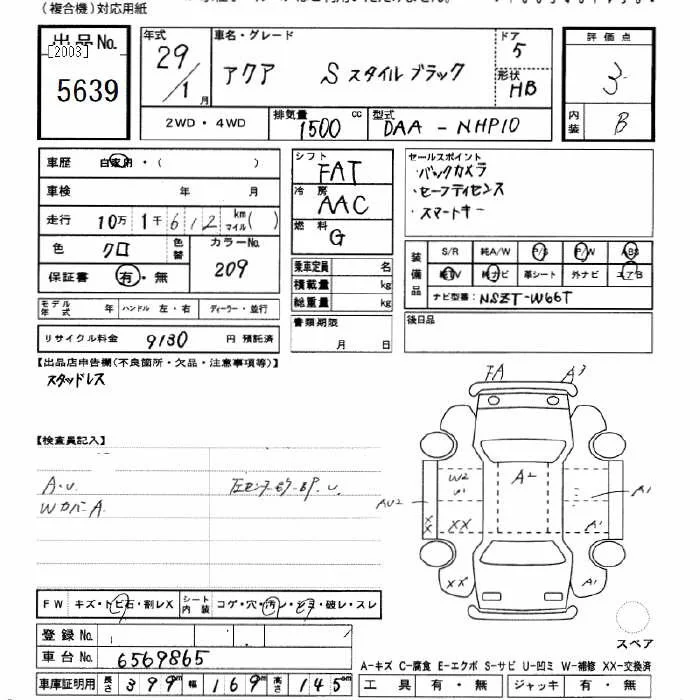 (複合機)対応用紙
出品No.
[2003]
5639
年式
29/1月
車名・グレード
アクア S スタイルブラック
ドア
5
形状
HB
評価点
3
内装
B
2WD・4WD
排気量
1500 cc
型式
DAA-NHP10
車歴 自家用・( )
車検 年 月
走行 10万 1千 612 km マイル( )
色 クロ 色替
カラーNo.
209
保証書 有・無
シフト
FAT
冷房
AAC
燃料
G
セールスポイント
・バックカメラ
・セーフティセンス
・スマートキー
装備品
S/R 純A/W P/S P/W ABS
純TV 純ナビ 革シート 外ナビ エアB
ナビ型番: NSZT-W66T
乗車定員 名
積載量 kg
総重量 kg
モデル年式 年 ハンドル 左・右 ディーラー・並行
書類期限
月 日
後日品
リサイクル料金 9130 円 預託済
【出品店申告欄(不良箇所・欠品・注意事項等)】
スタッドレス
【検査員記入】
A.U.
WカバーA.
FA
A3
W2
A2
AU2
A1
XX
XX
XX
A1
XX
A1
FW キズ・トビ石・割レX
シート内装 コゲ・穴・汚レ・シミ・破レ・スレ
登録No.
車台No. 6569865
車庫証明用 長さ 399 cm 幅 169 cm 高さ 145 cm
スペア
A-キズ C-腐食 E-エクボ S-サビ U-凹ミ W-補修 XX-交換済
工具 有・無 ジャッキ 有・無